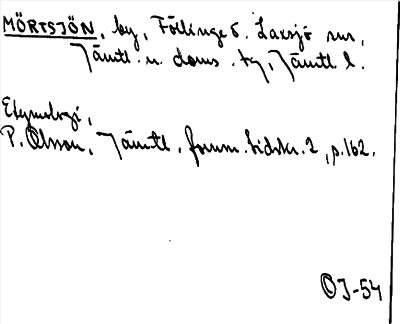 MÖRTSJÖN, by, Föllinge o. Laxsjö snr,
Jämtl. n. doms. tg, Jämtl. l.
Etymologi,
P. Olsson, Jämtl. fornm. tidskr. 2, p. 162.
OJ-54